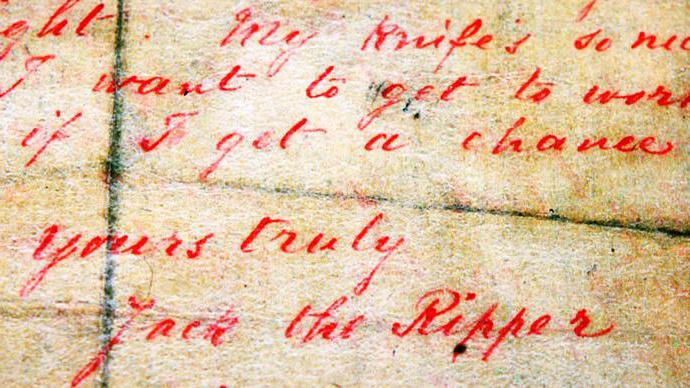 ght. My Knife's so
I want to get to
if I get a chance
yours truly
Jack the Ripper